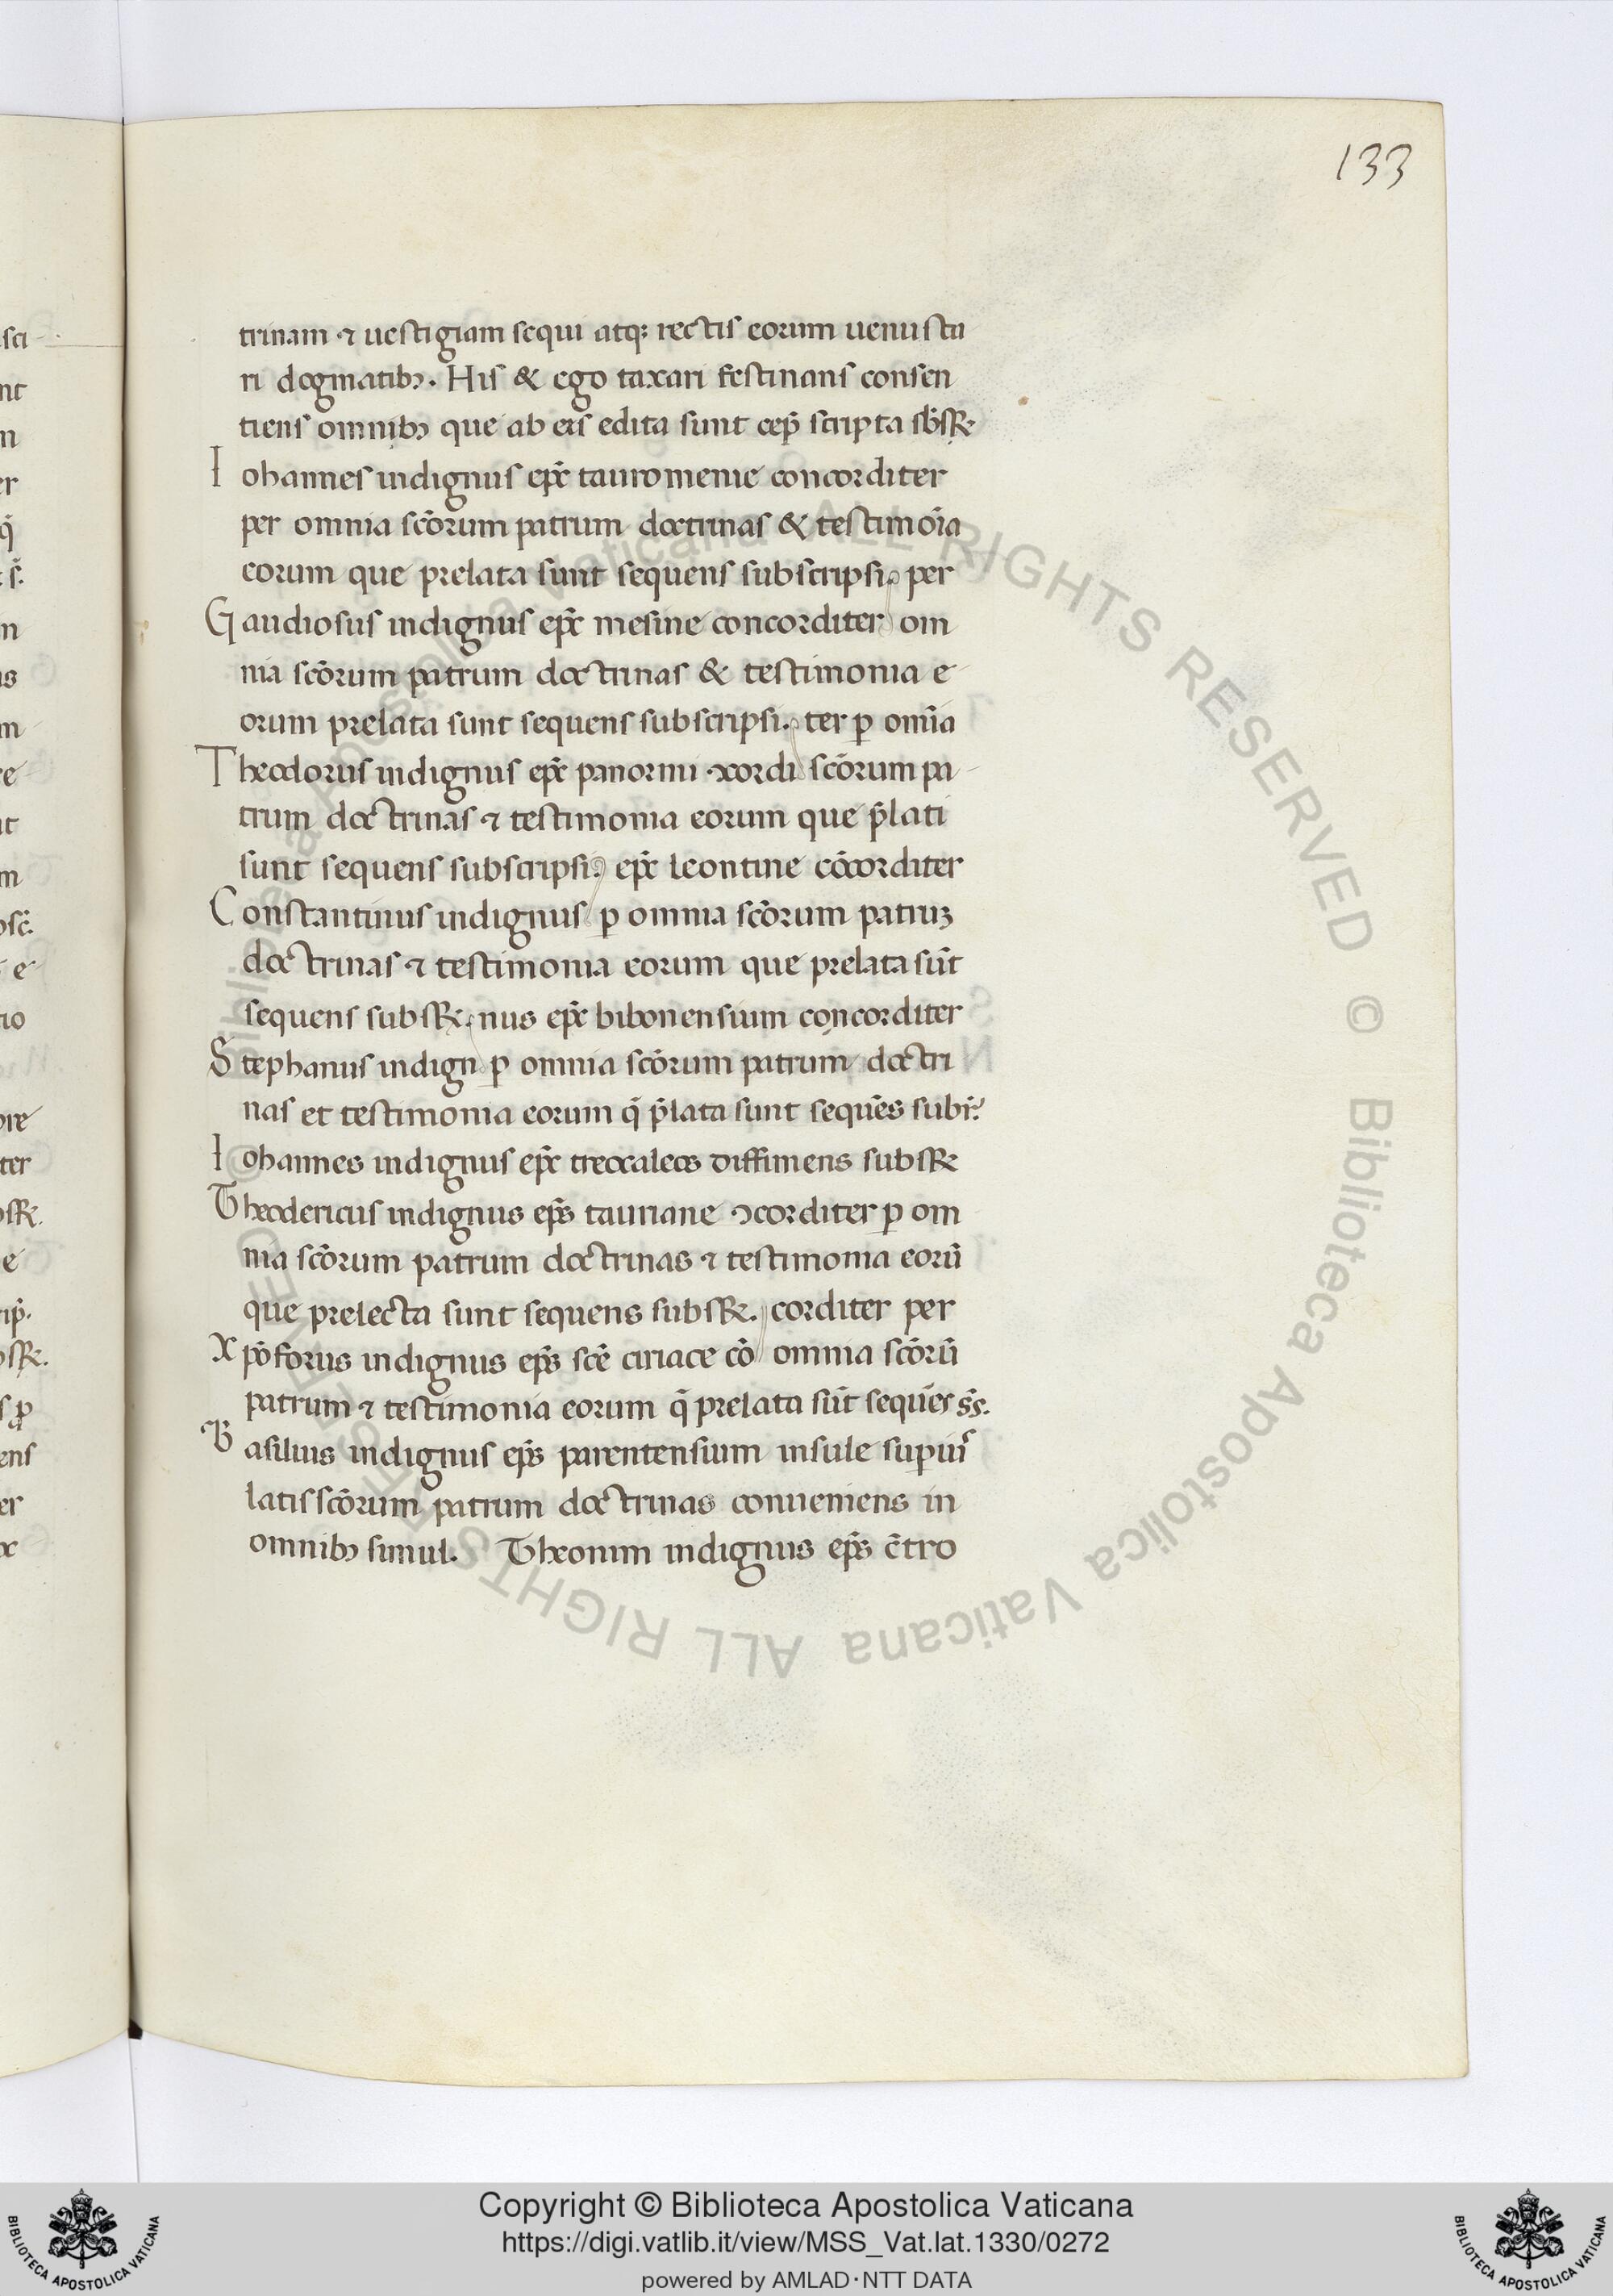 133
trinam ⁊ uestigiam sequi atqꝫ rectis eorum uenusta
ri dogmatibꝫ. His & ego taxari festinans consen
tiens omnibꝫ que ab eis edita sunt
Iohannes indignus ep̄s tauromenie concorditer
per omnia sc̄orum patrum doctrinas & testimōīa
eorum que prelata sunt sequens subscripsi. per
Gaudiosus indignus ep̄s mesine concorditer om
nia sc̄orum patrum doctrinas & testimonia e
orum prelata sunt sequens subscripsi. ter ꝑ om̄ia
Theodorus indignus ep̄s panormi ꝯcordi sc̄orum pa
trum doctrinas ⁊ testimonia eorum que p̄lati
sunt sequens subscripsi. ep̄s leontine cōcorditer
Constantinus indignus ꝑ omnia sc̄orum patruꝫ
doctrinas ⁊ testimonia eorum que prelata sūt
sequens subsR. nus ep̄s bibonensium concorditer
Stephanus indign ꝑ omnia sc̄orum patrum doctri
nas et testimonia eorum q̄ p̄lata sunt sequēs
Iohannes indignus ep̄s treocaleos diffiniens subsR
Theodericus indignus ep̄s tauriane ꝯcorditer ꝑ om
nia sc̄orum patrum doctrinas ⁊ testimonia eorū
que prelecta sunt sequens subsR. corditer per
Xp̄oforus indignus ep̄s sc̄e ciriace cō omnia sc̄orū
patrum ⁊ testimonia eorum q̄ prelata sūt sequēs s̄s.
Basilius indignus ep̄s parentensium insule supius
latis sc̄orum patrum doctrinas conueniens in
omnibꝫ simul. Theonim indignus ep̄s c̄tro
© Biblioteca Apostolica Vaticana ALL RIGHTS RESERVED © Biblioteca Apostolica Vaticana ALL RIGHTS RESERVED
BIBLIOTECA APOSTOLICA VATICANA
Copyright © Biblioteca Apostolica Vaticana
https://digi.vatlib.it/view/MSS_Vat.lat.1330/0272
powered by AMLAD·NTT DATA
BIBLIOTECA APOSTOLICA VATICANA